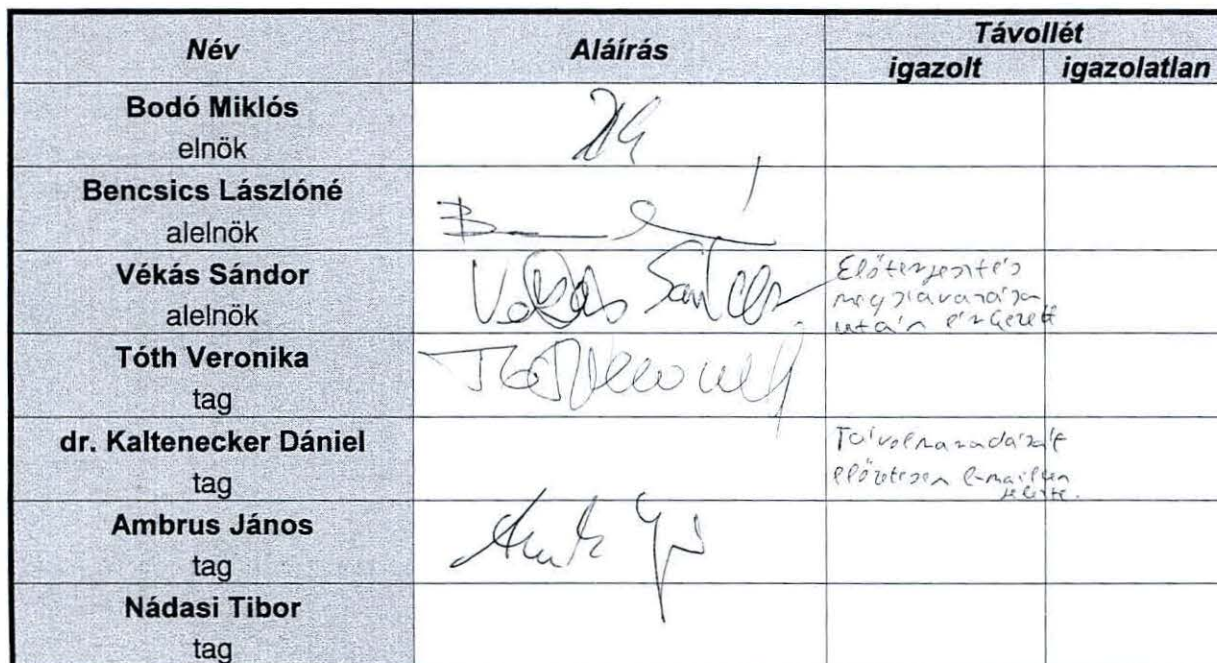 Név Aláírás Távollét
igazolt igazolatlan
Bodó Miklós
elnök
Bencsics Lászlóné
alelnök
Vékás Sándor Vékás Sándor Előterjesztés
alelnök megszavazása
után érkezett
Tóth Veronika Tóth Veronika
tag
dr. Kaltenecker Dániel Távolmaradását
tag előzetesen e-mailben
jelezte.
Ambrus János
tag
Nádasi Tibor
tag